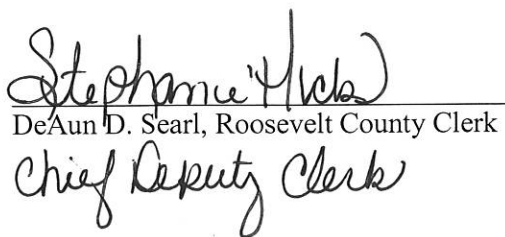 Stephanie Hicks
DeAun D. Searl, Roosevelt County Clerk
Chief Deputy Clerk